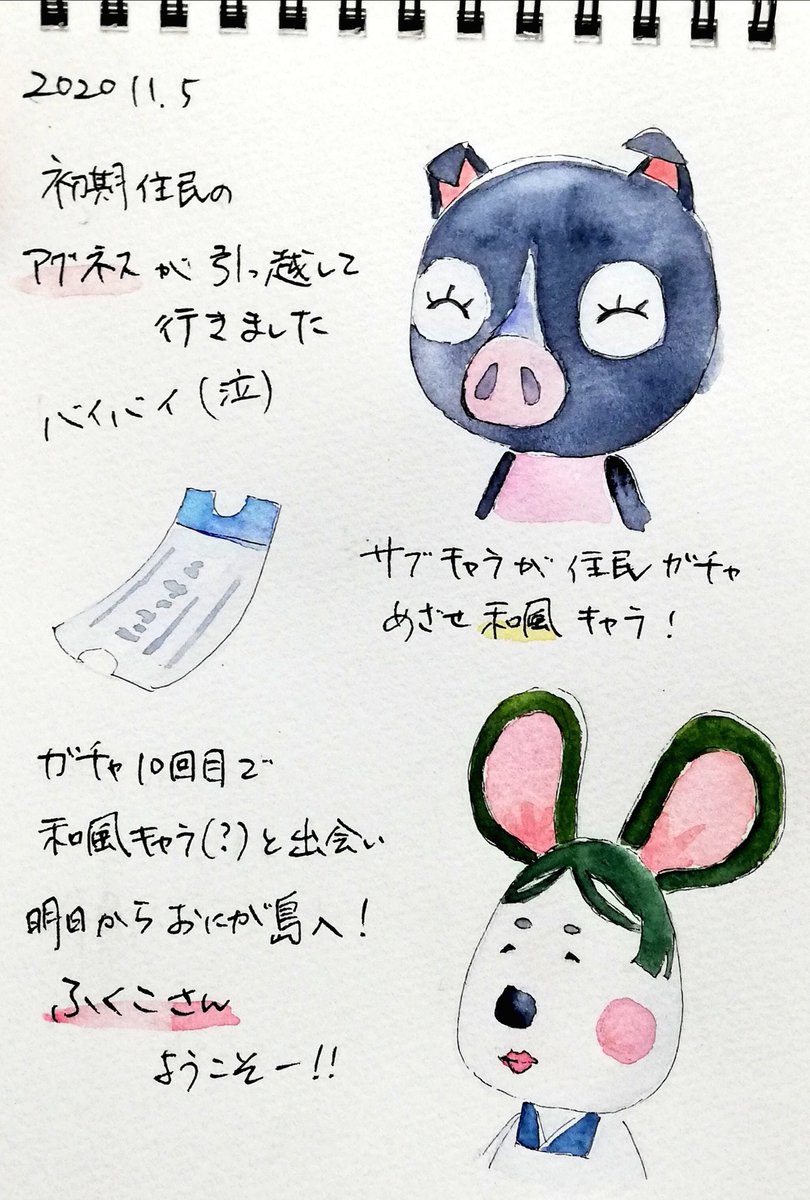 2020 11.5
初期住民の
アグネスが引っ越して
行きました
バイバイ(泣)
サブキャラが住民ガチャ
めざせ和風キャラ!
ガチャ10回目で
和風キャラ(?)と出会い
明日からおにが島へ!
ふくこさん
ようこそー!!